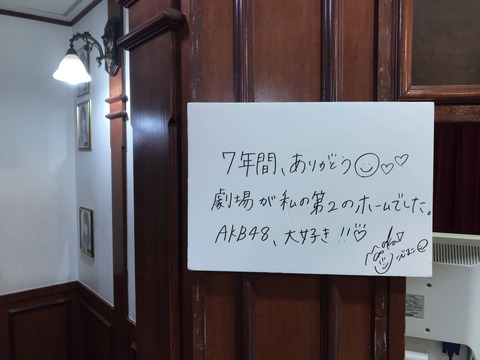 7年間、ありがとう
劇場が私の第2のホームでした。
AKB48、大好き!!